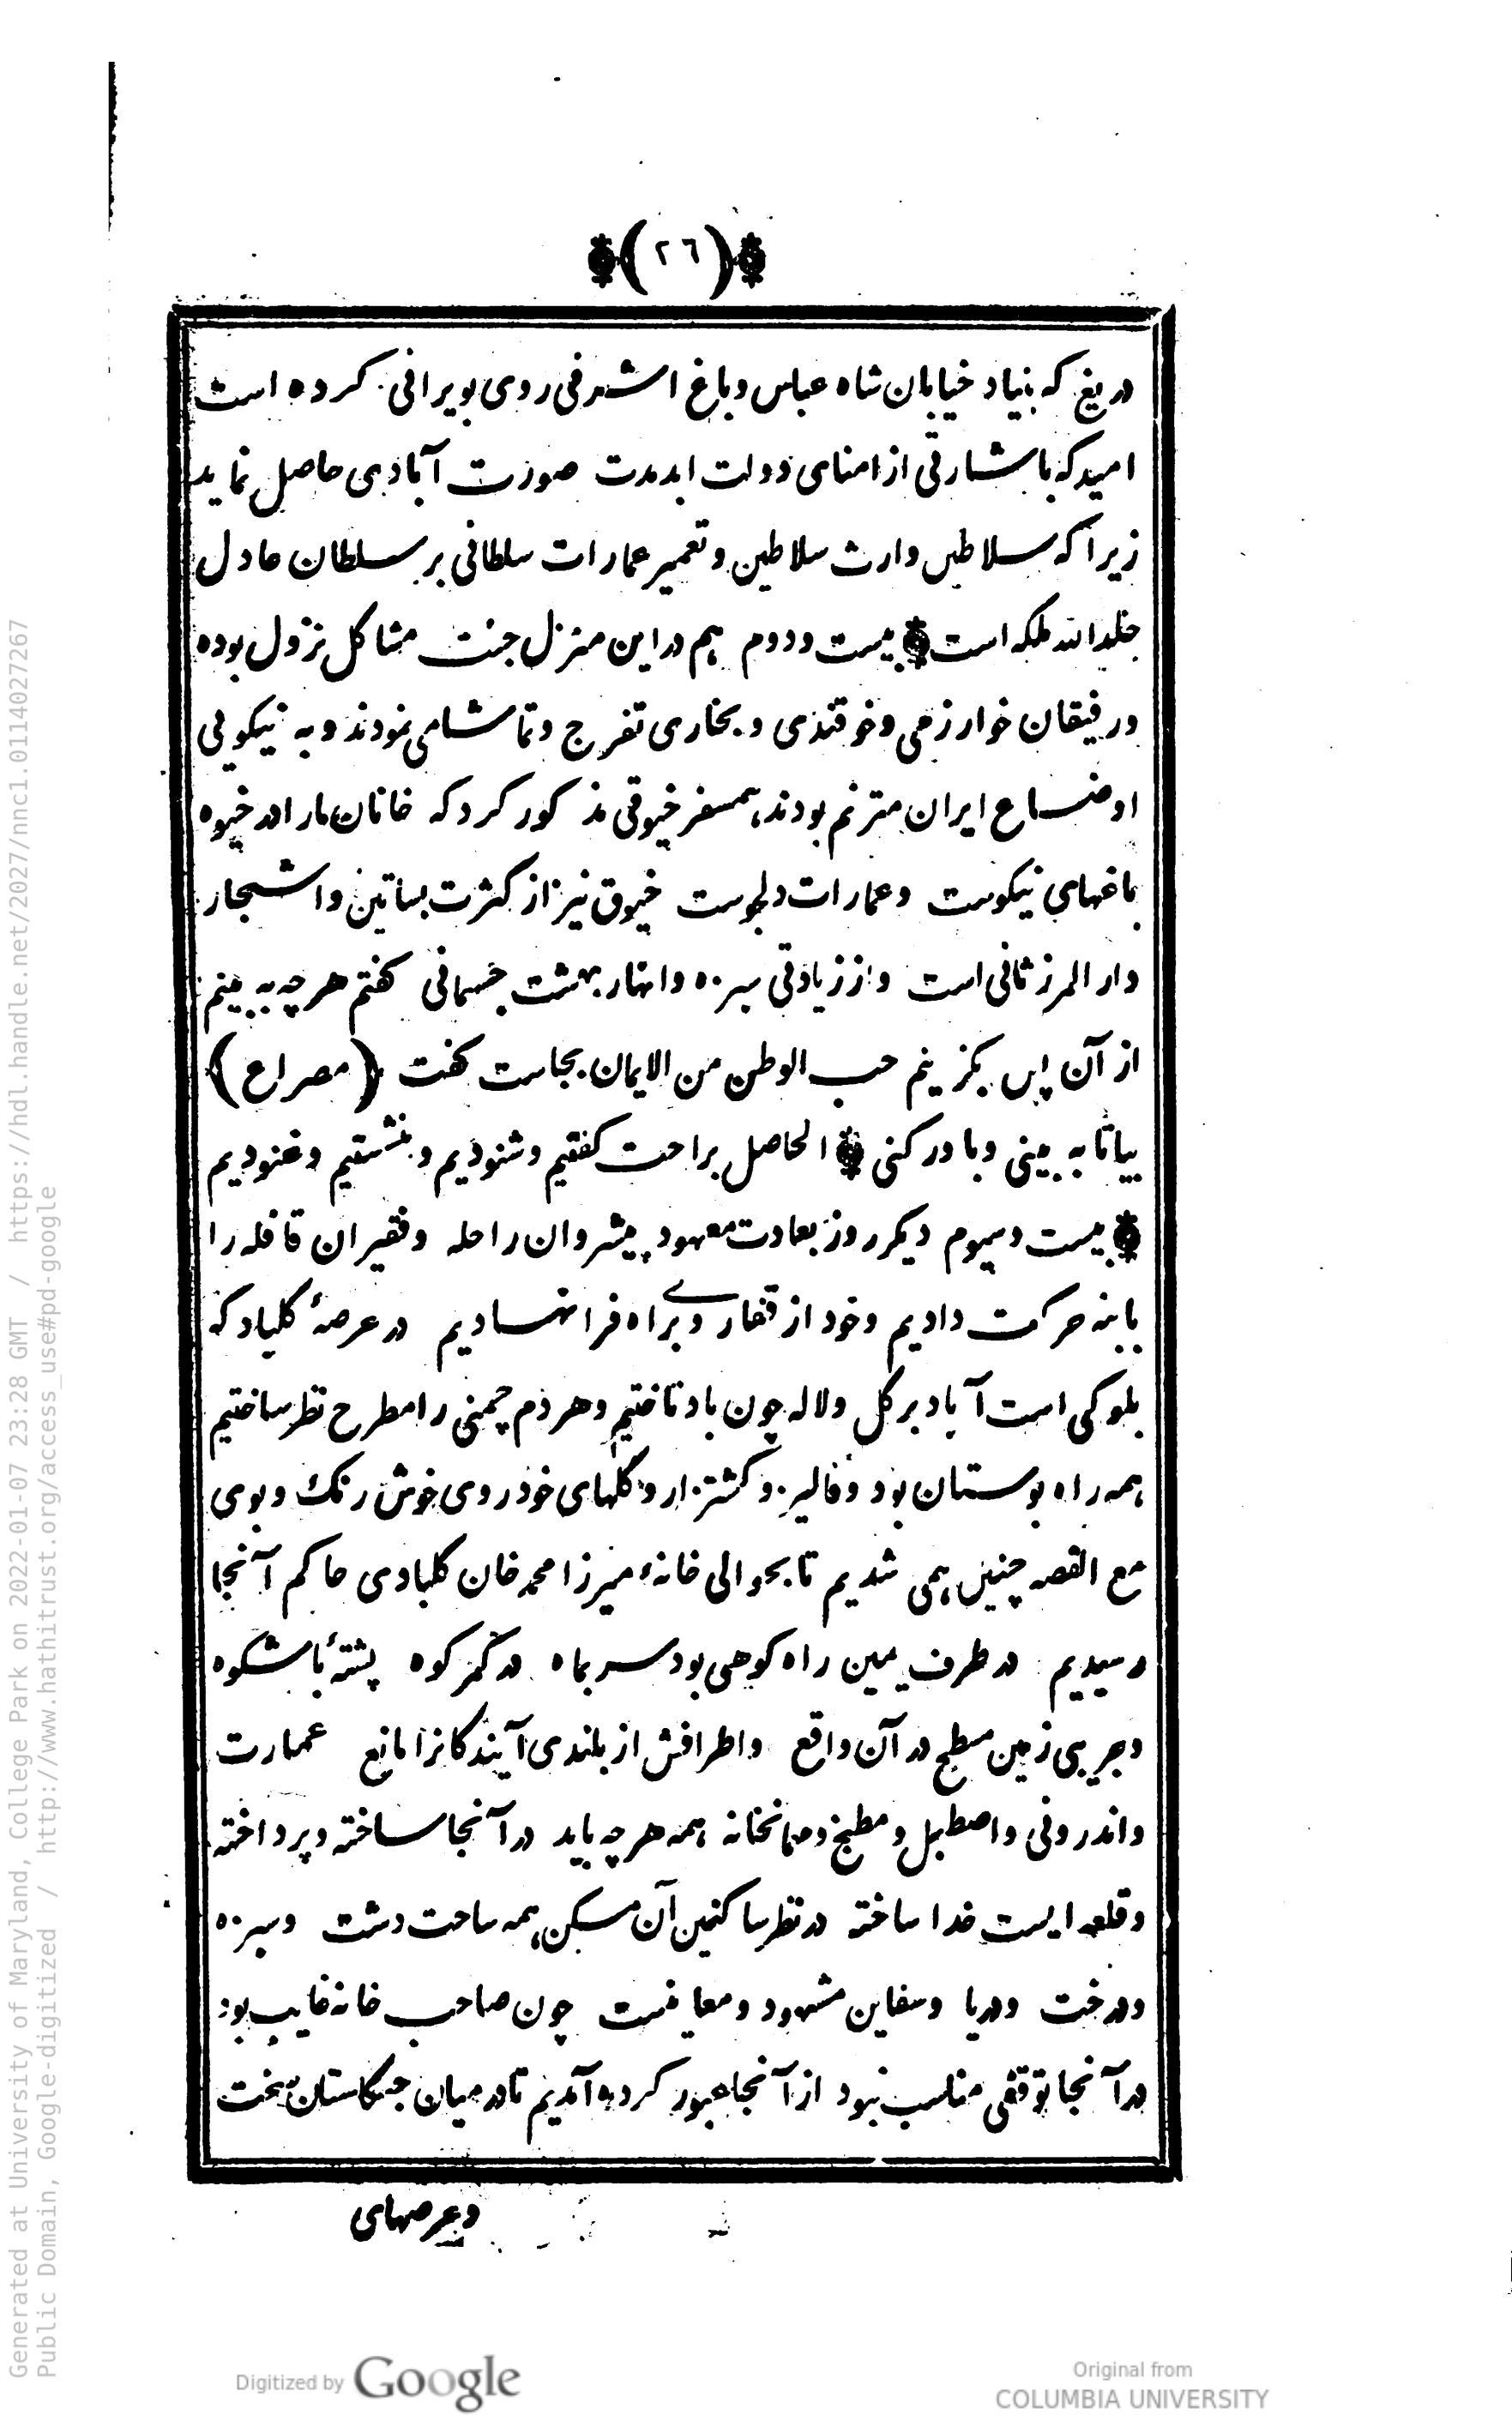 (٢٦)
دریغ که بنیاد خیابان شاه عباس و باغ اشرفی روی بویرانی کرده است
امید که باشارتی از امنای دولت ابدمدت صورت آبادی حاصل نماید
زیرا که سلاطین وارث سلاطین و تعمیر عمارات سلطانی بر سلطان عادل
خلد الله ملکه است بیست و دوم هم در این منزل جنت مشاکل نزول بوده
و رفیقان خوارزمی و خوقندی و بخاری تفرج و تماشا می نمودند و به نیکویی
اوضاع ایران مترنم بودند همسفر خیوقی مذکور کرد که خانان مارا در خیوه
باغهای نیکوست و عمارات دلجوست خیوق نیز از کثرت بساتین و اشجار
دار المرز ثانی است و از زیادتی سبزه و انهار بهشت جسمانی کفتم هر چه به بینم
از آن پس بکزینم حب الوطن من الایمان بجاست کفت (مصراع)
بیا تا به بینی و باور کنی الحاصل براحت کفتیم و شنودیم و بنشستیم و غنودیم
بیست و سیوم دیکر روز بعادت معهود پیشروان راحله و فقیران قافله را
با بنه حرکت دادیم و خود از قفا روی براه فرا نهادیم در عرصهٔ کلباد که
بلوکی است آباد بر کل و لاله چون باد تاختیم و هر دم چمنی را مطرح نظر ساختیم
همه راه بوستان بود و فالیز و کشتزار و کلهای خودروی خوش رنک و بوی
مع القصه چنین همی شدیم تا بحوالی خانهٔ میرزا محمد خان کلبادی حاکم آنجا
رسیدیم در طرف یمین راه کوهی بود سر بماه در کمر کوه پشتهٔ با شکوه
و جریبی زمین مسطح در آن واقع و اطرافش از بلندی آیندکانرا مانع عمارت
و اندرونی و اصطبل و مطبخ و مهمانخانه همه هر چه باید در آنجا ساخته و پرداخته
و قلعه ایست خدا ساخته در نظر ساکنین آن مسکن همه ساحت دشت و سبزه
و درخت و دریا و سفاین مشهود و معاینست چون صاحب خانه غایب بود
در آنجا توقفی مناسب نبود از آنجا عبور کرده آمدیم تا در میان جنکلستان سخت
و عرصهای
Generated at University of Maryland, College Park on 2022-01-07 23:28 GMT / https://hdl.handle.net/2027/nnc1.0114027267
Public Domain, Google-digitized / http://www.hathitrust.org/access_use#pd-google
Digitized by Google
Original from
COLUMBIA UNIVERSITY